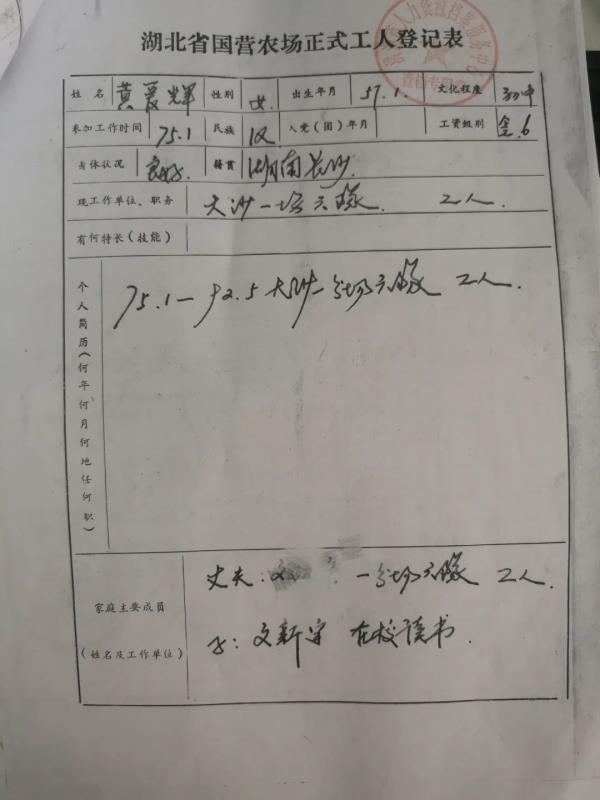 湖北省国营农场正式工人登记表
姓名 黄夏辉 性别 女 出生年月 57.1. 文化程度 初中
参加工作时间 75.1 民族 汉 入党(团)年月 工资级别 6
身体状况 良好 籍贯 湖南长沙
现工作单位、职务 大沙一场六队 工人.
有何特长(技能)
个人简历(何年何月何地任何职) 75.1—92.5 大沙一分场六队 工人.
家庭主要成员
(姓名及工作单位)
丈夫:文 一分场六队 工人.
子:文新宇 在校读书.